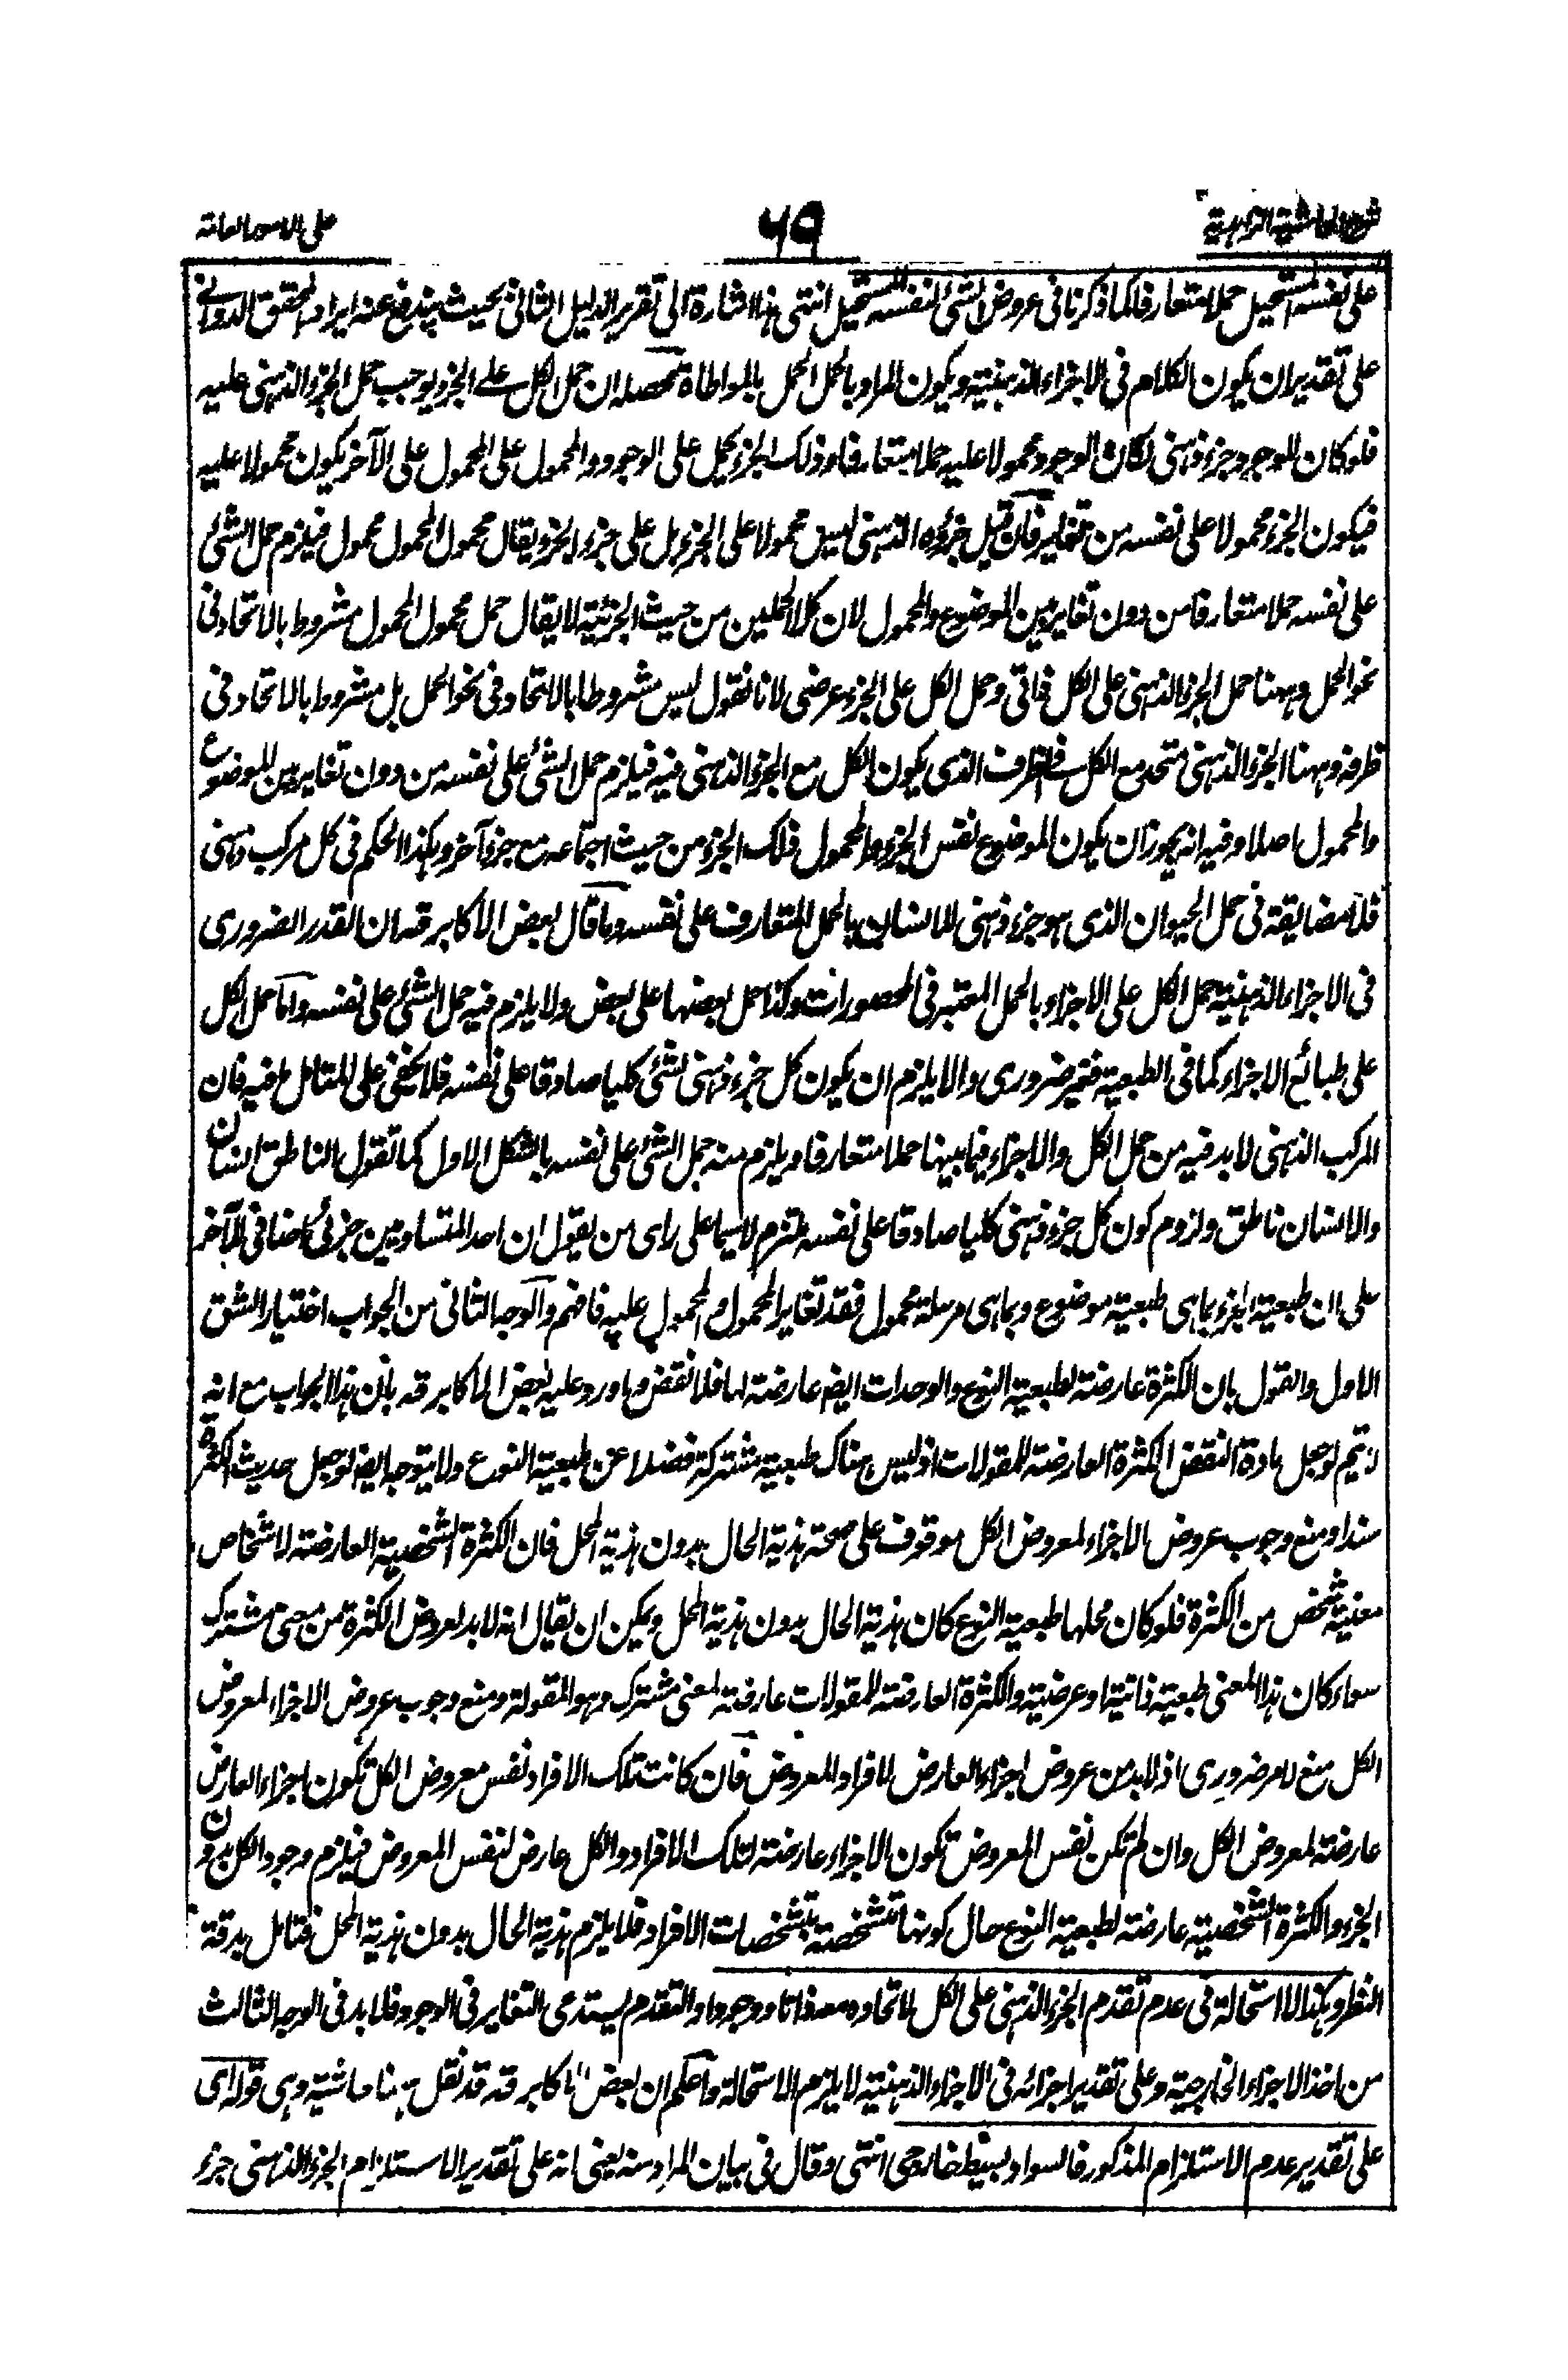 شرح الحاشية الزاهدية
٦٩
على الامور العامة
على نفسه المستحيل حملا متعارفا كما ذكرنا فى عروض الشئ لنفسه المستحيل انتهى هذا اشارة الى تقرير الدليل الثانى بحيث يندفع عنه ايراد المحقق الدوانى
على تقدير ان يكون الكلام فى الاجزاء الذهنية ويكون المراد بالحمل الحمل بالمواطاة محصله ان حمل الكل على الجزء يوجب حمل الجزء الذهنى عليه
فلو كان للوجود جزء ذهنى لكان الوجود محمولا عليه حملا متعارفا وذلك الجزء يحمل على الوجود والمحمول على المحمول على الآخر يكون محمولا عليه
فيكون الجزء محمولا على نفسه من تغاير فان قيل جزءه الذهنى ليس محمولا على الجزء بل على جزء الجزء يقال محمول المحمول محمول فيلزم حمل الشئ
على نفسه حملا متعارفا من دون تغاير بين الموضوع والمحمول لان كلا الحملين من حيث الجزئية لا يقال حمل محمول المحمول مشروط بالاتحاد فى
نحو الحمل وههنا حمل الجزء الذهنى على الكل ذاتى وحمل الكل على الجزء عرضى لانا نقول ليس مشروطا بالاتحاد فى نحو الحمل بل مشروط بالاتحاد فى
ظرفه وههنا الجزء الذهنى متحد مع الكل فى الظرف الذى يكون الكل مع الجزء الذهنى فيه فيلزم حمل الشئ على نفسه من دون تغاير بين الموضوع
والمحمول اصلا وفيه انه يجوز ان يكون الموضوع نفس الجزء والمحمول ذلك الجزء من حيث اجتماعه مع جزء آخر وهكذا الحكم فى كل مركب ذهنى
فلا مضايقة فى حمل الحيوان الذى هو جزء ذهنى للانسان بالحمل المتعارف على نفسه وما قال بعض الاكابر قه ان القدر الضرورى
فى الاجزاء الذهنية حمل الكل على الاجزاء بالحمل المعتبر فى المحصورات وكذا حمل بعضها على بعض ولا يلزم فيه حمل الشئ على نفسه واما حمل الكل
على طبائع الاجزاء كما فى الطبعية فغير ضرورى والا يلزم ان يكون كل جزء ذهنى لشئ كليا صادقا على نفسه فلا يخفى على المتامل ما فيه فان
المركب الذهنى لابد فيه من حمل الكل والاجزاء فيما بينها حملا متعارفا ويلزم منه حمل الشئ على نفسه بالشكل الاول كما تقول الناطق انسان
والانسان ناطق ولزوم كون كل جزء ذهنى كليا صادقا على نفسه ملتزم لاسيما على راى من يقول ان احد المتساويين جزئى اضافى للآخر
على ان طبعية الجزء بما هى طبعية موضوع وبما هى مرسلة محمول فقد تغاير المحمول والمحمول عليه فافهم والوجه الثانى من الجواب اختيار الشق
الاول والقول بان الكثرة عارضة لطبعية النوع والوحدات ايضا عارضة لها فلا نقض وما ورد عليه بعض الاكابر قه بان هذا الجواب مع انه
لا يتم لو جعل مادة النقض الكثرة العارضة للمقولات اذ ليس هناك طبعية مشتركة فضلا عن طبعية النوع ولا يتوجه ايضا لو جعل حديث الكثرة
سندا ومنع وجوب عروض الاجزاء لمعروض الكل موقوف على صحة هذية الحال بدون هذية المحل فان الكثرة الشخصية العارضة لاشخاص
معينة شخص من الكثرة فلو كان محلها طبعية النوع كان هذية الحال بدون هذية المحل ويمكن ان يقال انه لابد لعروض الكثرة من معنى مشترك
سواء كان هذا المعنى طبعية ذاتية او عرضية والكثرة العارضة للمقولات عارضة لمعنى مشترك وهو المقولة ومنع وجوب عروض الاجزاء لمعروض
الكل منع لامر ضرورى اذ لابد من عروض اجزاء العارض لافراد المعروض فان كانت تلك الافراد نفس معروض الكل تكون اجزاء العارض
عارضة لمعروض الكل وان لم تكن نفس المعروض تكون الاجزاء عارضة لتلك الافراد والكل عارض لنفس المعروض فيلزم وجود الكل بدون
الجزء والكثرة الشخصية عارضة لطبعية النوع حال كونها متشخصة بتشخصات الافراد فلا يلزم هذية الحال بدون هذية المحل فتامل بدقة
النظر وهكذا لا استحالة فى عدم تقدم الجزء الذهنى على الكل لاتحاده معه ذاتا ووجودا والتقدم يستدعى التغاير فى الوجود فلابد فى الوجه الثالث
من اخذ الاجزاء الخارجية وعلى تقدير اجزائه فى الاجزاء الذهنية لا يلزم الاستحالة واعلم ان بعض الاكابر قه قد نقل ههنا حاشية وهى قوله اى
على تقدير عدم الاستلزام المذكور فالسواد بسيط خارجى انتهى وقال فى بيان المراد منه يعنى انه على تقدير الاستلزام الجزء الذهنى جزء